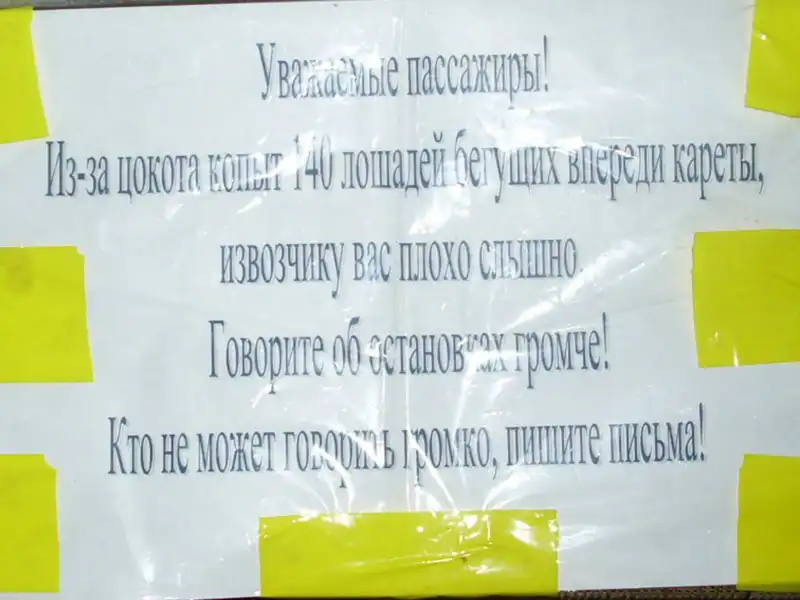 Уважаемые пассажиры!
Из-за цокота копыт 140 лошадей бегущих впереди кареты,
извозчику вас плохо слышно.
Говорите об остановках громче!
Кто не может говорить громко, пишите письма!